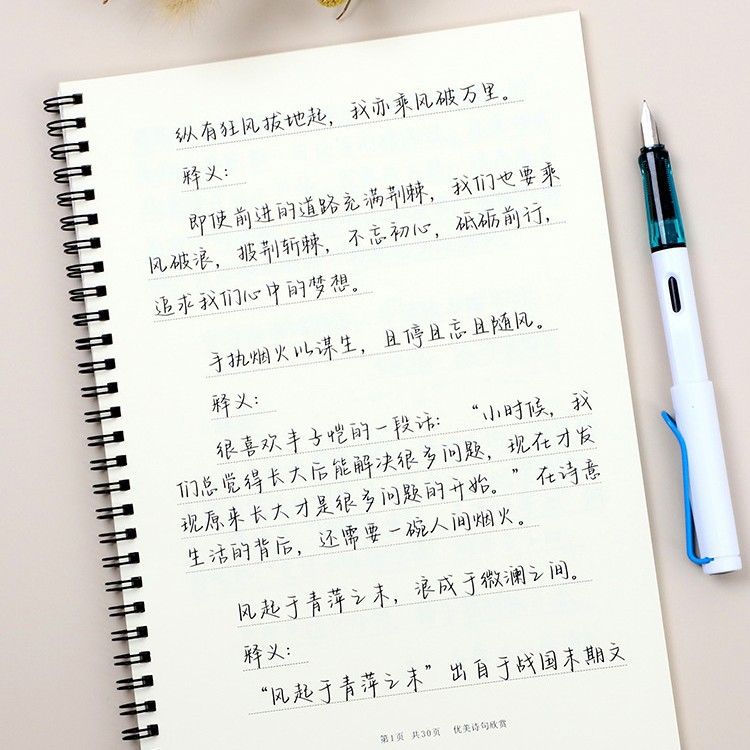 纵有狂风拔地起，我亦乘风破万里。
释义：
即使前进的道路充满荆棘，我们也要乘
风破浪，披荆斩棘，不忘初心，砥砺前行，
追求我们心中的梦想。
手执烟火以谋生，且停且忘且随风。
释义：
很喜欢丰子恺的一段话：“小时候，我
们总觉得长大后能解决很多问题，现在才发
现原来长大才是很多问题的开始。”在诗意
生活的背后，还需要一碗人间烟火。
风起于青萍之末，浪成于微澜之间。
释义：
“风起于青萍之末”出自于战国末期文
第1页 共30页 优美诗句欣赏